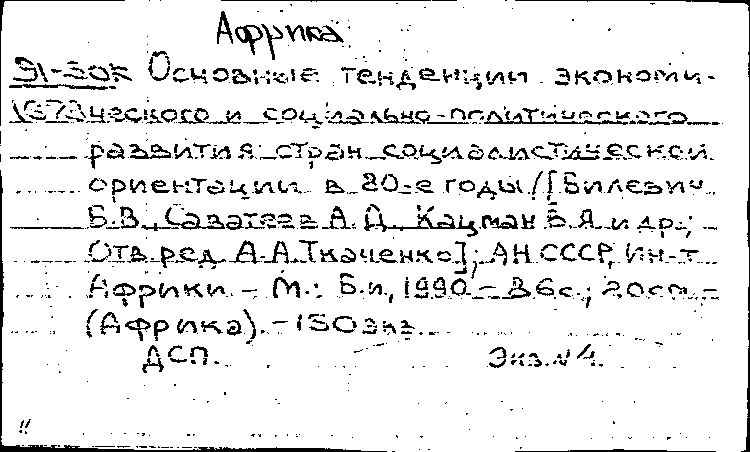 Африка
91-30к Основные тенденции экономи-
1373ческого и социально-политического
развития стран социалистической
ориентации в 80-е годы / [Билевич
Б.В., Саватеев А.Д., Кацман В.Я. и др.;
Отв. ред. А.А.Ткаченко]; АН СССР, Ин-т
Африки - М.: Б.и, 1990 - 86с.; 20см. -
(Африка). - 150экз.
ДСП. Экз.N4.